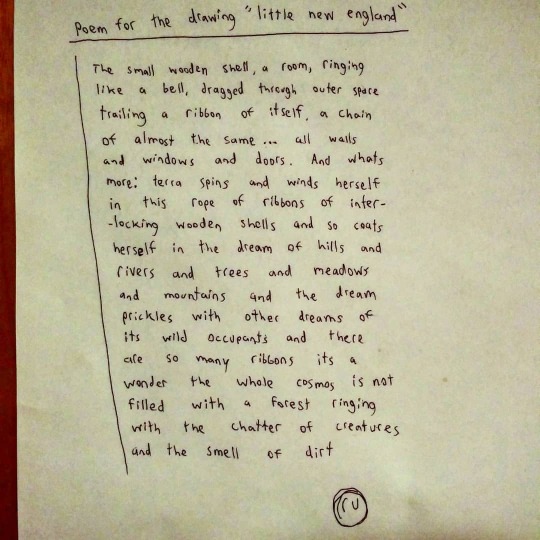 Poem for the drawing "little new england"
The small wooden shell, a room, ringing
like a bell, dragged through outer space
trailing a ribbon of itself, a chain
of almost the same... all walls
and windows and doors. And whats
more: terra spins and winds herself
in this rope of ribbons of inter-
-locking wooden shells and so coats
herself in the dream of hills and
rivers and trees and meadows
and mountains and the dream
prickles with other dreams of
its wild occupants and there
are so many ribbons its a
wonder the whole cosmos is not
filled with a forest ringing
with the chatter of creatures
and the smell of dirt
ru